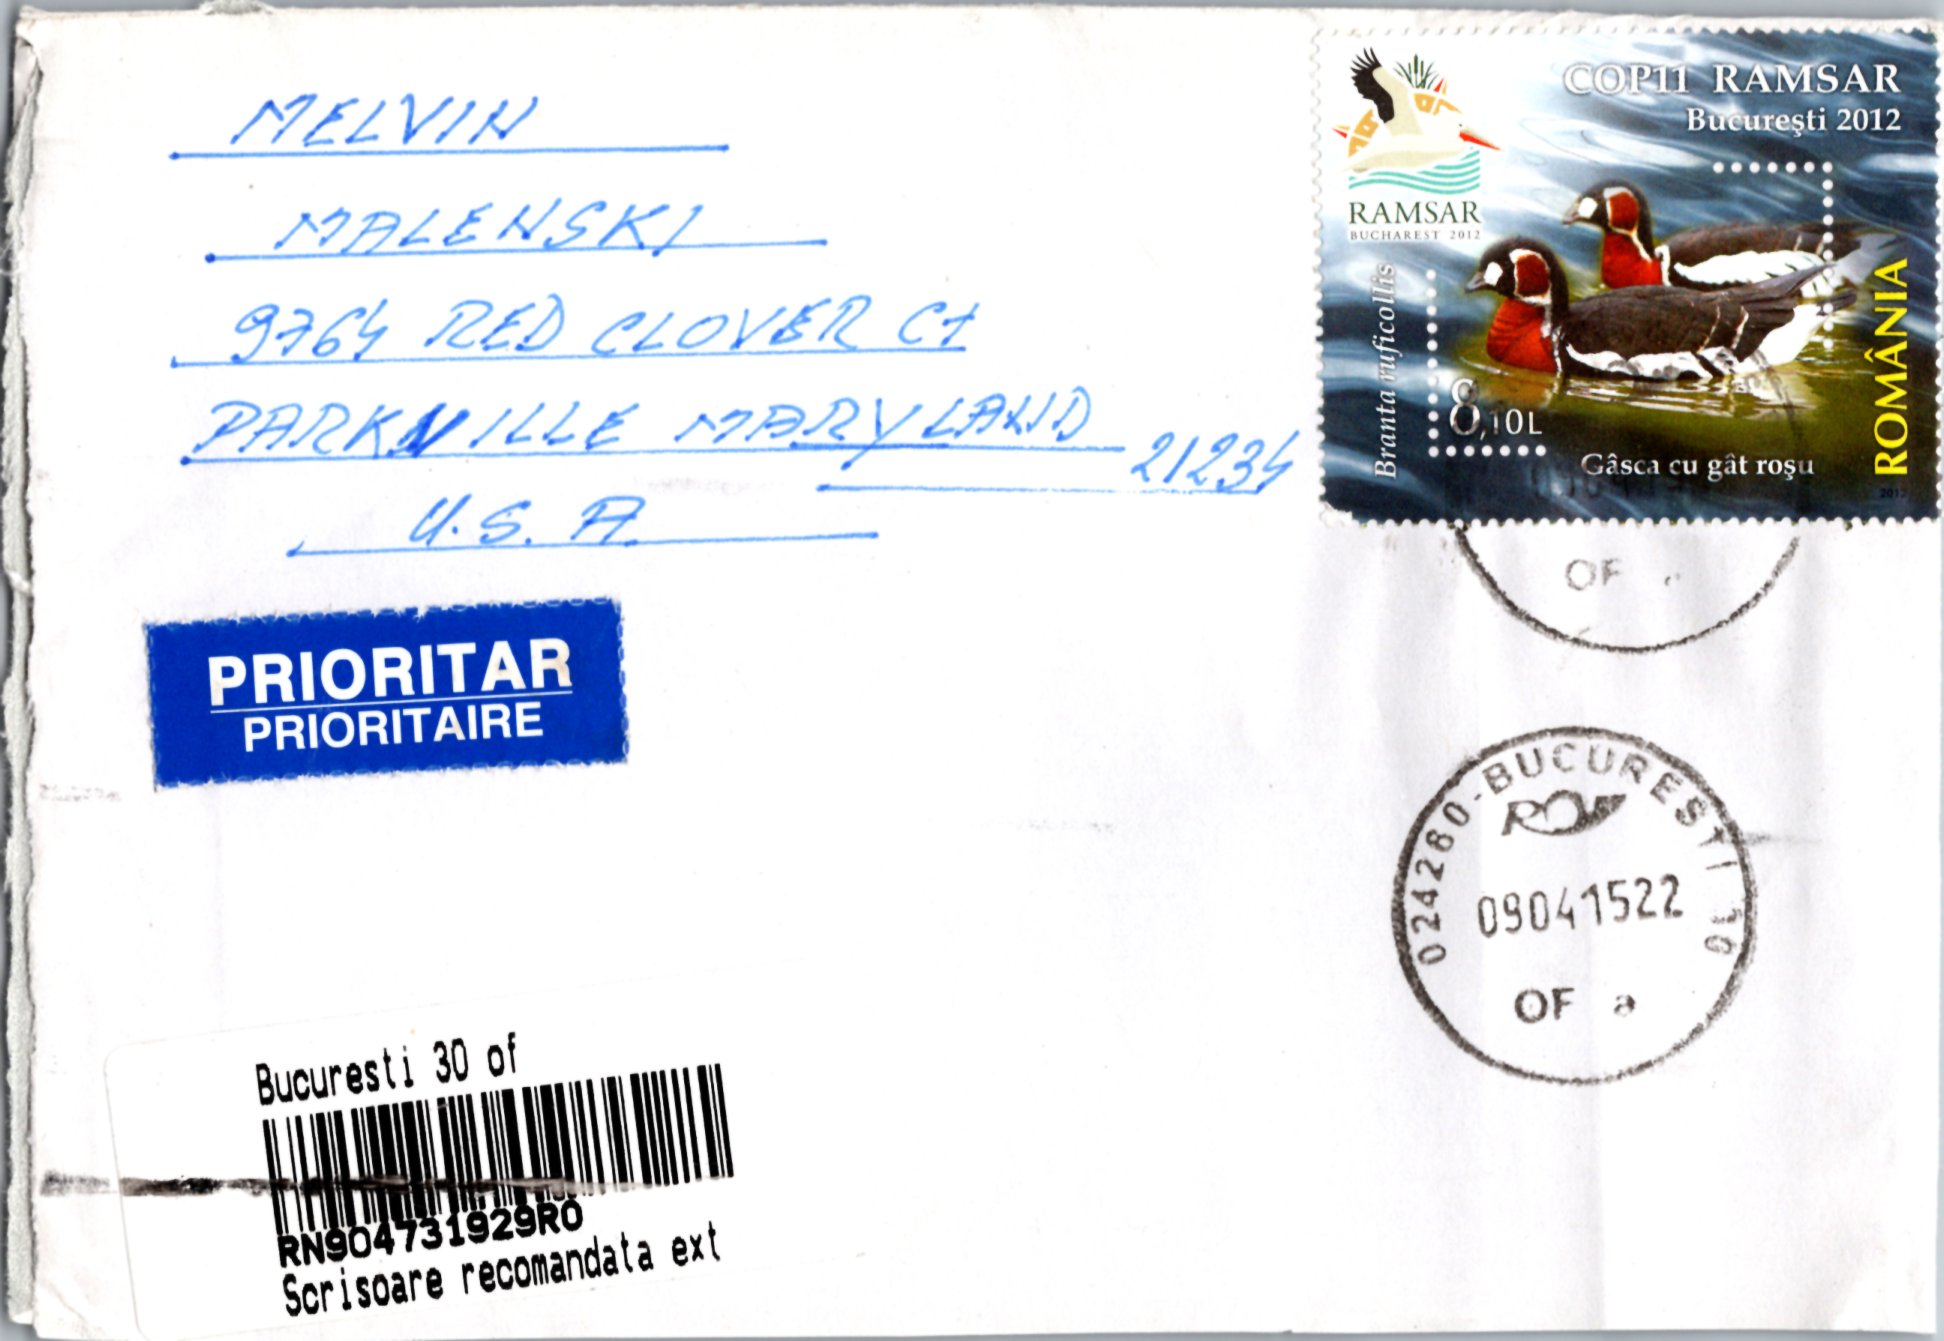 MELVIN
MALENSKI
9764 RED CLOVER Ct
PARKVILLE MARYLAND 21234
U.S.A.
PRIORITAR
PRIORITAIRE
Bucuresti 30 of
RN904731929RO
Scrisoare recomandata ext
COP11 RAMSAR
Bucureşti 2012
RAMSAR
BUCHAREST 2012
Branta ruficollis
8,10L
Gâsca cu gât roşu
ROMÂNIA
2012
OF
024260-BUCURESTI 30
09041522
OF a